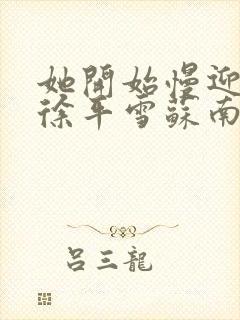 她開始慢迎
徐平雪蘇南
呂三龍